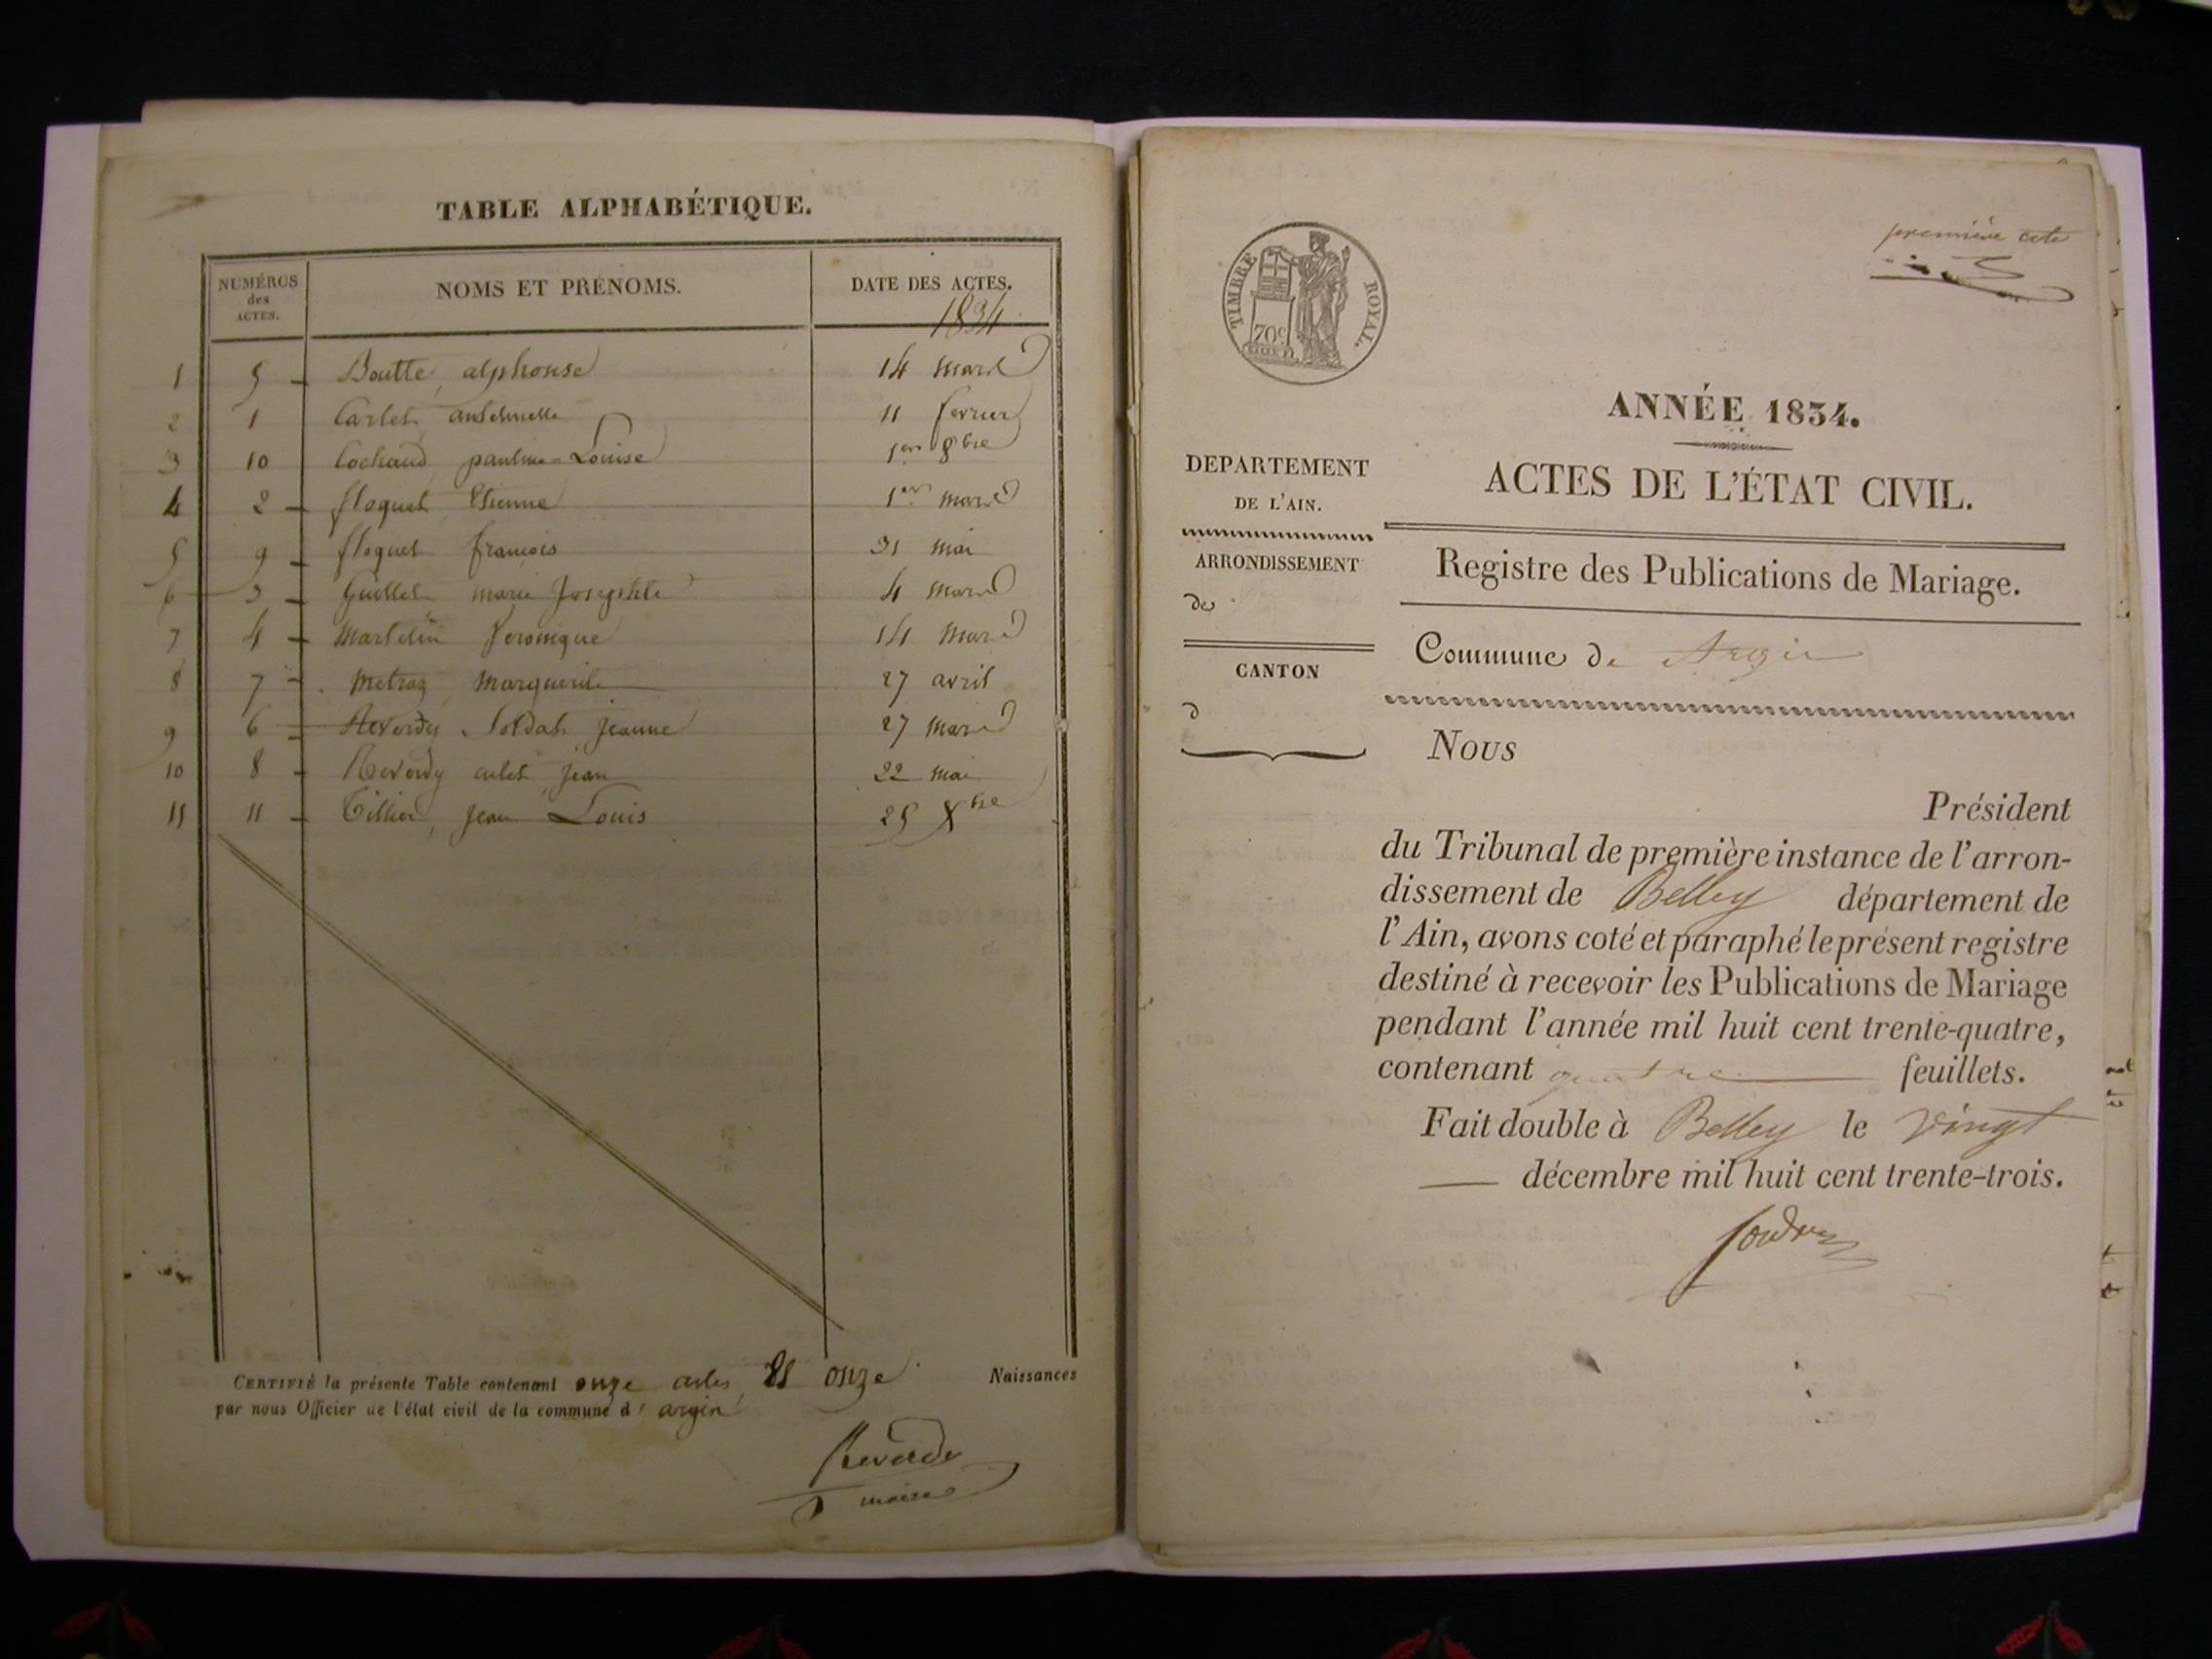 TABLE ALPHABÉTIQUE.
NUMÉROS des ACTES.
NOMS ET PRÉNOMS.
DATE DES ACTES.
1834
1 5 Boutte, alphonse 14 mars
2 1 Carlet, anthelmette 11 fevrier
3 10 Cochaud pauline-Louise 1er 8bre
4 2 floquet Etienne 1er mars
5 9 floquet françois 31 mai
6 3 Guillet marie Josephte 4 mars
7 4 Martelin Veronique 14 mars
8 7 Metraz Marguerite 27 avril
9 6 Reverdy Soldat Jeanne 27 mars
10 8 Reverdy culet Jean 22 mai
11 11 Tillier, Jean Louis 25 Xbre
CERTIFIÉ la présente Table contenant onze actes Et onze Naissances
par nous Officier de l'état civil de la commune d'argin
maire
première cote
TIMBRE ROYAL.
70c
ANNÉE 1834.
DEPARTEMENT
DE L'AIN.
ACTES DE L'ÉTAT CIVIL.
ARRONDISSEMENT
de
Registre des Publications de Mariage.
CANTON
d
Commune de
Nous
Président
du Tribunal de première instance de l'arron-
dissement de Belley département de
l'Ain, avons coté et paraphé le présent registre
destiné à recevoir les Publications de Mariage
pendant l'année mil huit cent trente-quatre,
contenant quatre feuillets.
Fait double à Belley le vingt
décembre mil huit cent trente-trois.